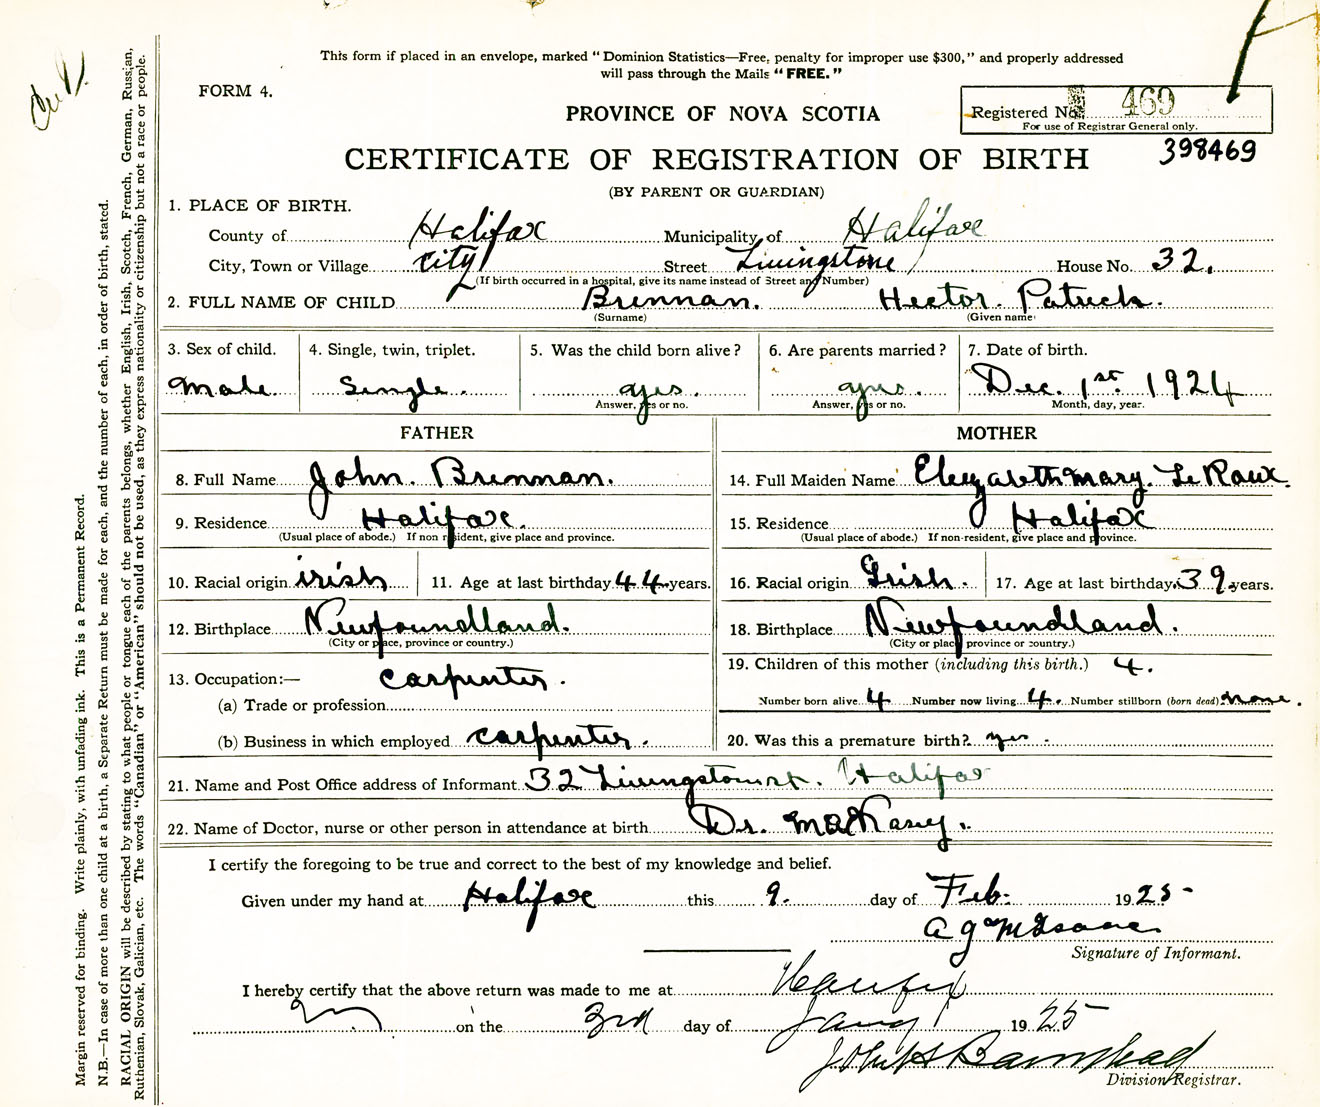 This form if placed in an envelope, marked "Dominion Statistics—Free, penalty for improper use $300," and properly addressed
will pass through the Mails "FREE."
FORM 4.
PROVINCE OF NOVA SCOTIA
Registered No. 469
For use of Registrar General only.
398469
CERTIFICATE OF REGISTRATION OF BIRTH
(BY PARENT OR GUARDIAN)
1. PLACE OF BIRTH.
County of Halifax Municipality of Halifax
City, Town or Village City Street Livingstone House No. 32.
(If birth occurred in a hospital, give its name instead of Street and Number)
2. FULL NAME OF CHILD Brennan. Hector Patrick.
(Surname) (Given name)
3. Sex of child. 4. Single, twin, triplet. 5. Was the child born alive? 6. Are parents married? 7. Date of birth.
Male Single. yes. yes. Dec. 1st. 1924
Answer, yes or no. Answer, yes or no. Month, day, year.
FATHER MOTHER
8. Full Name John. Brennan. 14. Full Maiden Name Elizabeth Mary. Le Roux.
9. Residence Halifax. 15. Residence Halifax
(Usual place of abode.) If non resident, give place and province. (Usual place of abode.) If non-resident, give place and province.
10. Racial origin irish 11. Age at last birthday 44 years. 16. Racial origin Irish. 17. Age at last birthday 39 years.
12. Birthplace Newfoundland. 18. Birthplace Newfoundland.
(City or place, province or country.) (City or place, province or country.)
19. Children of this mother (including this birth.) 4.
13. Occupation:— carpenter.
Number born alive 4 Number now living 4. Number stillborn (born dead) none.
(a) Trade or profession
(b) Business in which employed carpenter. 20. Was this a premature birth? yes.
21. Name and Post Office address of Informant 32 Livingstone st. Halifax
22. Name of Doctor, nurse or other person in attendance at birth Dr.
I certify the foregoing to be true and correct to the best of my knowledge and belief.
Given under my hand at Halifax this 9. day of Feb. 1925-
Signature of Informant.
I hereby certify that the above return was made to me at Halifax
on the 3rd day of 1925
John H Barnstead
Division Registrar.
Margin reserved for binding. Write plainly, with unfading ink. This is a Permanent Record.
N.B.—In case of more than one child at a birth, a Separate Return must be made for each, and the number of each, in order of birth, stated.
RACIAL ORIGIN will be described by stating to what people or tongue each of the parents belongs, whether English, Irish, Scotch, French, German, Russian,
Ruthenian, Slovak, Galician, etc. The words "Canadian" or "American" should not be used, as they express nationality or citizenship but not a race or people.